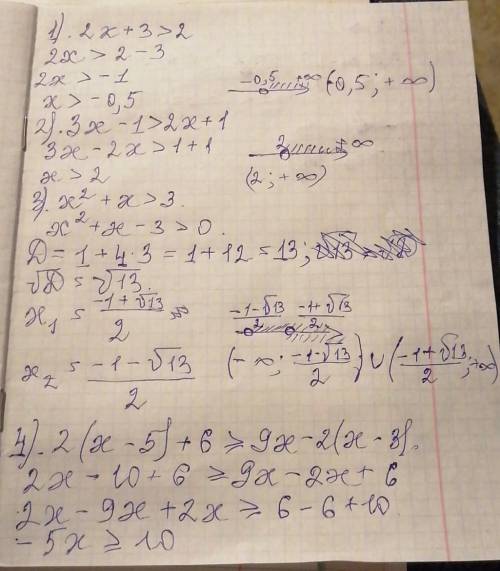 1). 2x + 3 > 2
2x > 2 - 3
2x > -1
x > -0,5
-0,5 +∞ (-0,5; +∞)
2). 3x - 1 > 2x + 1
3x - 2x > 1 + 1
x > 2
2 +∞
(2; +∞)
3). x² + x > 3.
x² + x - 3 > 0.
D = 1 + 4·3 = 1 + 12 = 13;
√D = √13.
x₁ = (-1 + √13)/2 =
x₂ = (-1 - √13)/2
(-1-√13)/2 (-1+√13)/2
(-∞; (-1-√13)/2) ∪ ((-1+√13)/2; +∞)
4). 2(x - 5) + 6 ⩾ 9x - 2(x - 3).
2x - 10 + 6 ⩾ 9x - 2x + 6
2x - 9x + 2x ⩾ 6 - 6 + 10.
-5x ⩾ 10